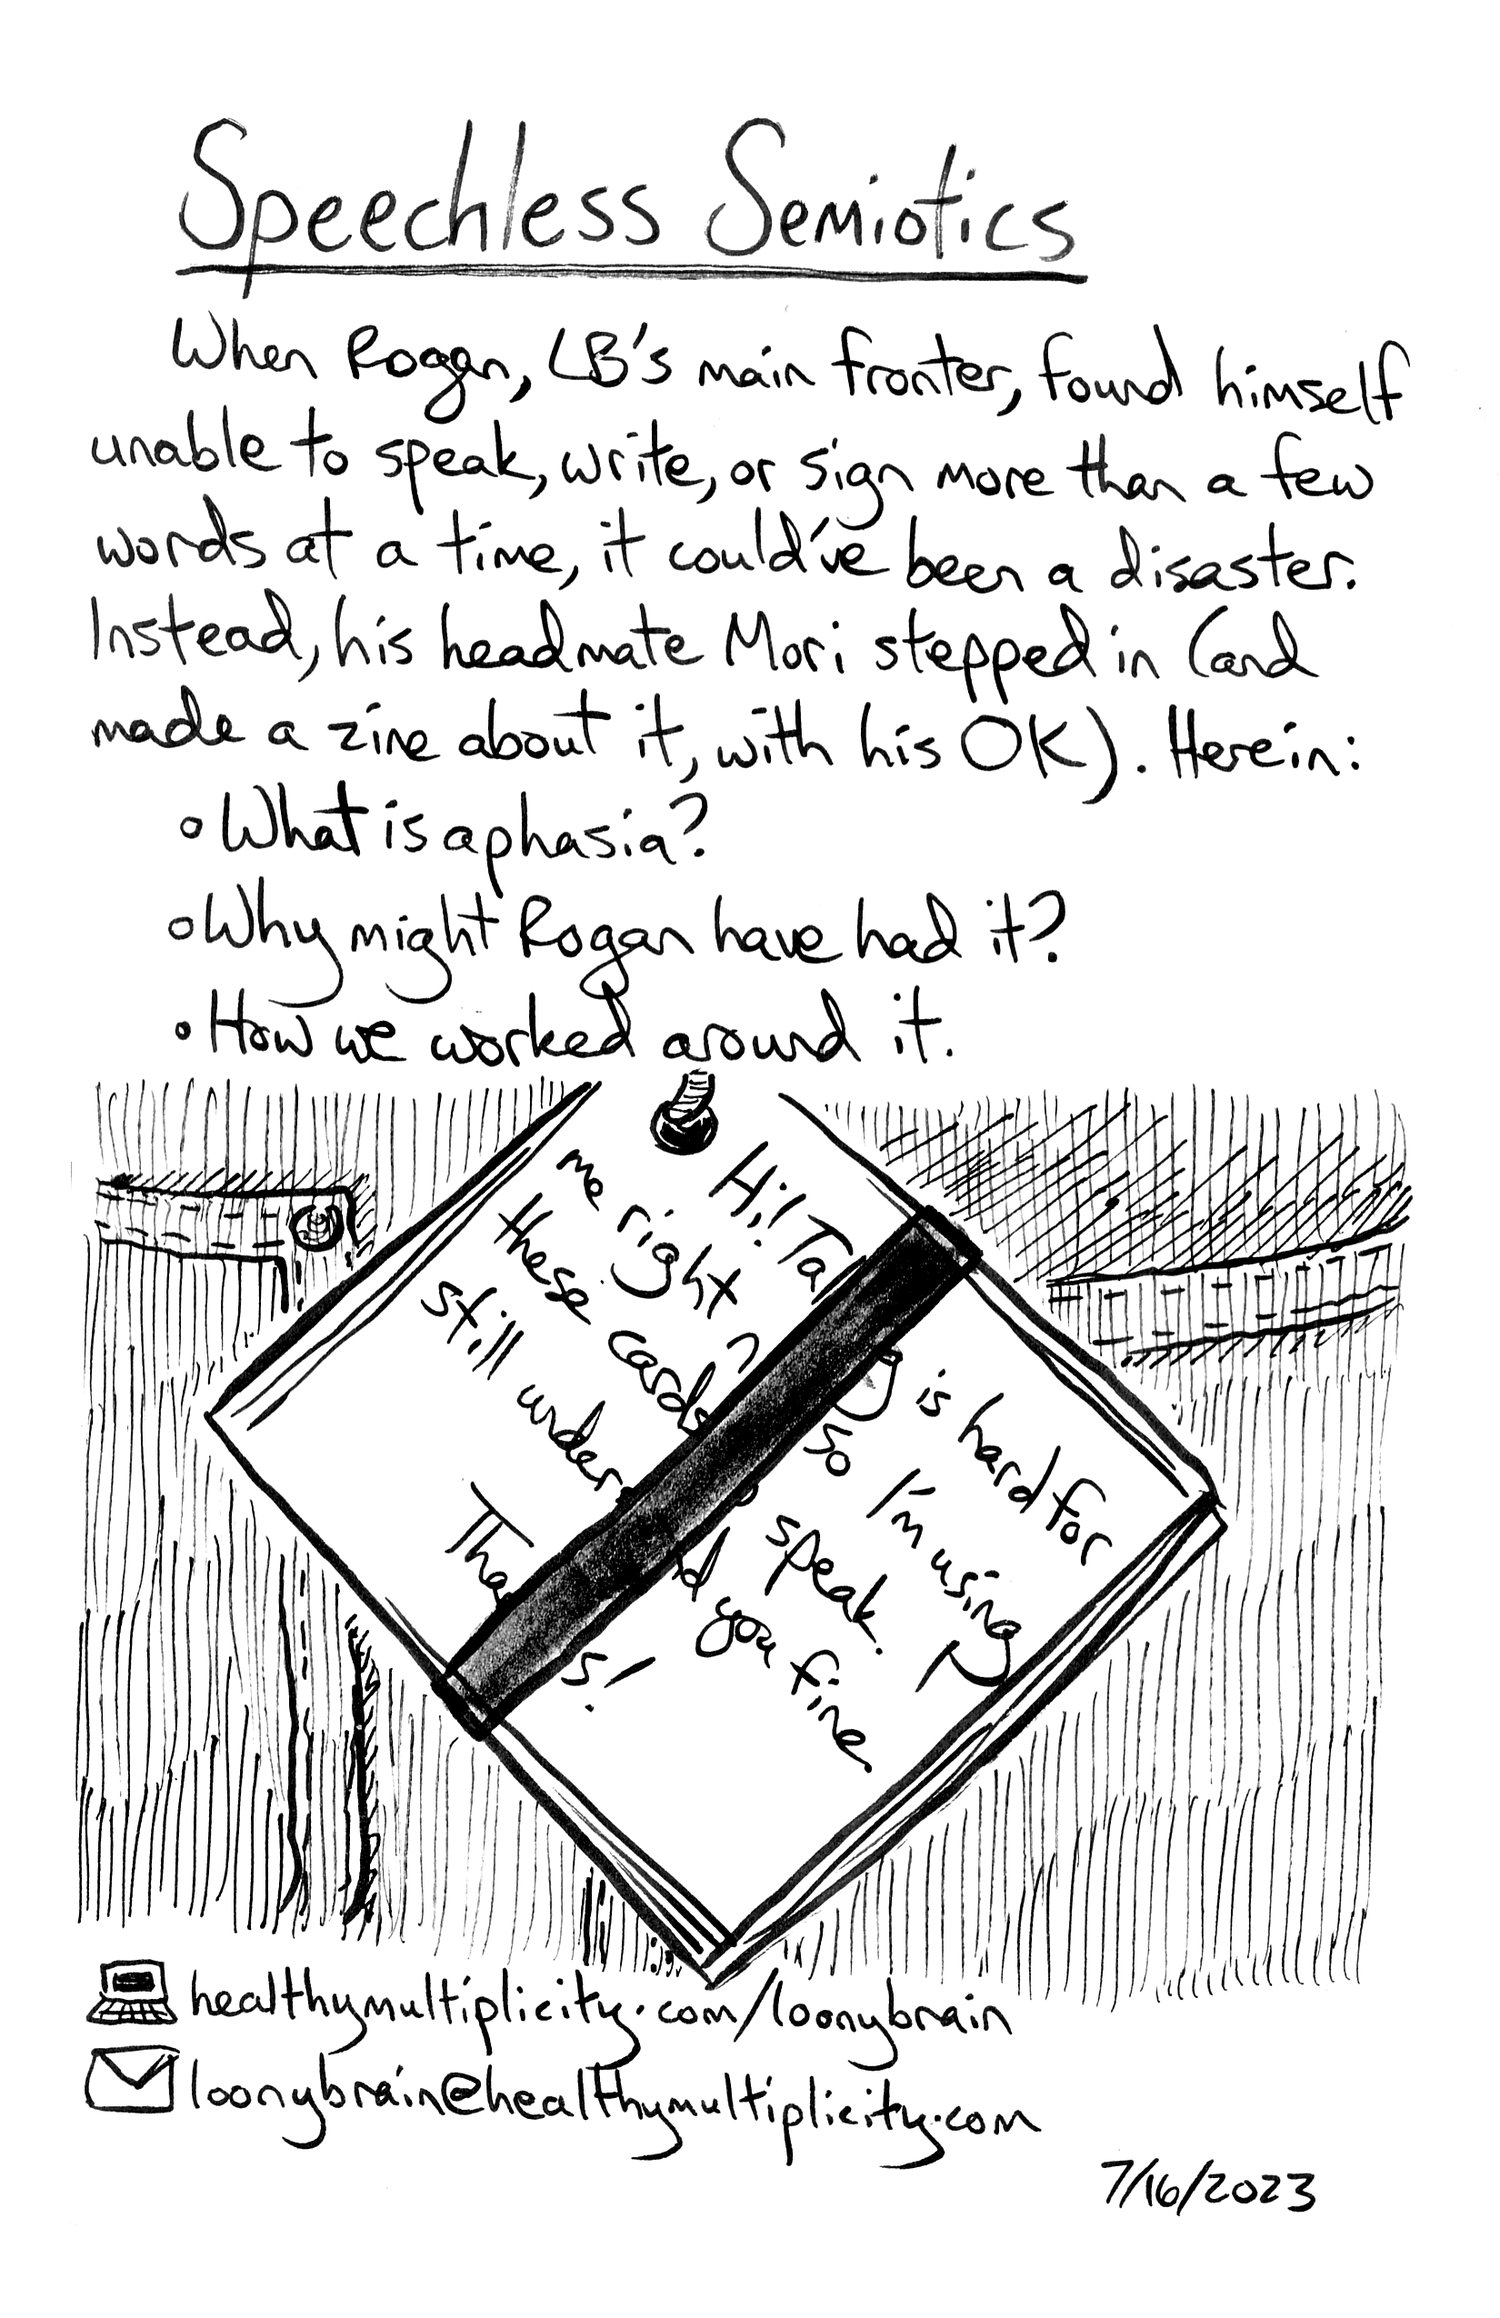 Speechless Semiotics
When Rogan, LB's main fronter, found himself
unable to speak, write, or sign more than a few
words at a time, it could've been a disaster.
Instead, his headmate Mori stepped in (and
made a zine about it, with his OK). Herein:
• What is aphasia?
• Why might Rogan have had it?
• How we worked around it.
Hi! Ta g is hard for
me right so I'm using
these cards o speak. I
still under d you fine.
Tha s!
healthymultiplicity.com/loonybrain
loonybrain@healthymultiplicity.com
7/16/2023